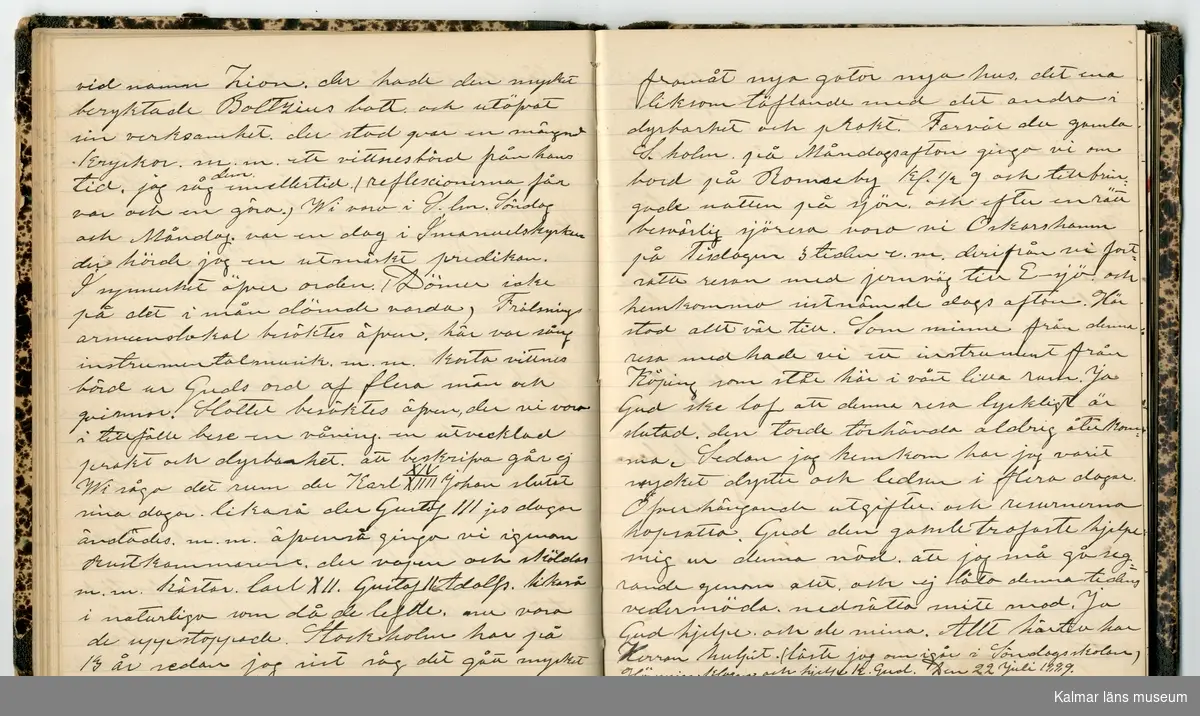 vid namn Zion. der hade den mycket
beryktade Boltzius bott och utöfvat
sin verksamhet. der stod qvar en mängd
Kryckor. m. m. ett vittnesbörd från hans
tid. jag såg dem imellertid. (reflexionerna får
var och en göra,) Wi voro i S.lm. Söndag
och Måndag. var en dag i Imanuelskyrkan
der hörde jag en utmärkt predikan.
I synnerhet öfver orden. (Dömer icke
på det i mån dömde varda,) Frälsnings
armeenslokal besöktes äfven, här var sång
instrumentalmusik. m. m. korta vittnes
börd ur Guds ord af flera män och
qvinnor. Slottet besöktes äfven, der vi voro
i tillfälle bese en våning. en utvecklad
prakt och dyrbarhet. att beskrifva går ej
Wi sågo det rum der Karl XIV XIIII Johan slutat
sina dagar. likaså der Gustaf III jes dagar
ändades. m. m. äfvenså gingo vi igenom
Rustkammaren. der vapen och sköldar
m. m. hästar. Carl XII. Gustaf II Adolfs. likaså
i naturliga som då de lefde. nu voro
de uppstoppade. Stockholm har på
13 år sedan jag sist såg det gått mycket
framåt nya gator nya hus. det ena
liksom täflande med det andra i
dyrbarhet och prakt. Farväl du gamla
S. holm. på Måndagsafton gingo vi om
bord på Romseby kl. 1/2 9 och tillbrin-
gade natten på sjön. och efter en rätt
besvärlig sjöresa voro vi Oskarshamn
på Tisdagen 3 tiden e. m. derifrån vi fort-
satte resan med jernväg till E-sjö och
hemkommo istnämde dags afton. Här
stod allt väl till. Som minne från denna
resa medhade vi ett instrument från
Köping som står här i vårt lilla rum. Ja
Gud ske lof att denna resa lyckligt är
slutad. den torde törhända aldrig återkom-
ma. Sedan jag hemkom har jag varit
mycket dyster och ledsen i flera dagar.
Öfverhängande utgifter. och resurserna
hopsatta. Gud den gamle trofaste hjelpe
mig ur denna nöd. att jag må gå seg
rande genom allt och ej låta denna tidens
vedermöda. nedsätta mitt mod. Ja
Gud hjelpe. och de mina. Allt härtill har
Herren hulpit. (läste jag om igår i Söndagsskolan,)
och hjelp H. Gud. Den 22 Juli 1889.
Kalmar läns museum